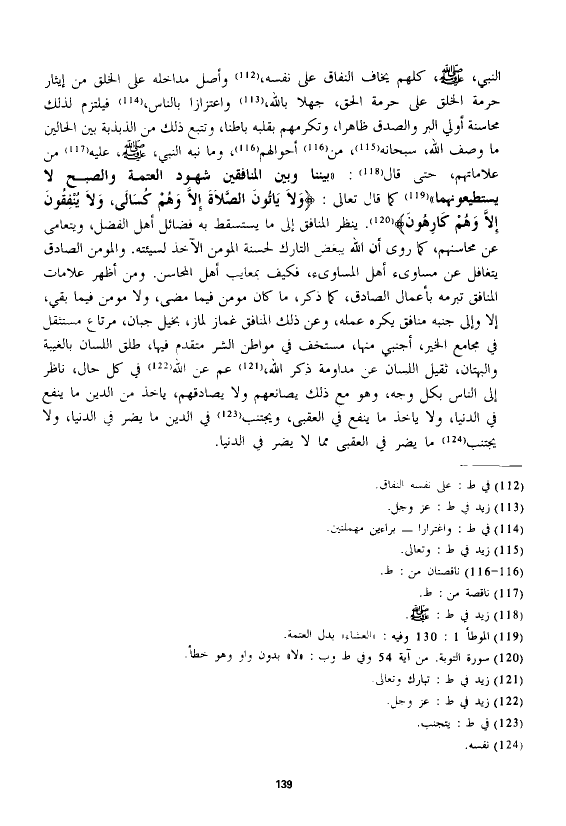 النبي، ﷺ، كلهم يخاف النفاق على نفسه،(112) وأصل مداخله على الخلق من إيثار
حرمة الخلق على حرمة الحق، جهلا بالله،(113) واعتزازا بالناس،(114) فيلتزم لذلك
محاسنة أولي البر والصدق ظاهرا، وتكرمهم بقلبه باطنا، وتتبع ذلك من الذبذبة بين الحالين
ما وصف الله، سبحانه(115)، من(116) أحوالهم(116)، وما نبه النبي، ﷺ، عليه(117) من
علاماتهم، حتى قال(118) : «بيننا وبين المنافقين شهود العتمة والصبح لا
يستطيعونهما»(119) كما قال تعالى : ﴿وَلاَ يَاتُونَ الصَّلاَةَ إِلاَّ وَهُمْ كُسَالَى، وَلاَ يُنْفِقُونَ
إِلاَّ وَهُمْ كَارِهُونَ﴾(120). ينظر المنافق إلى ما يستسقط به فضائل أهل الفضل، ويتعامى
عن محاسنهم، كما روى أن الله يبغض التارك لحسنة المومن الآخذ لسيئته. والمومن الصادق
يتغافل عن مساوىء أهل المساوىء، فكيف بمعايب أهل المحاسن. ومن أظهر علامات
المنافق تبرمه بأعمال الصادق، كما ذكر، ما كان مومن فيما مضى، ولا مومن فيما بقي،
إلا وإلى جنبه منافق يكره عمله، وعن ذلك المنافق غماز لماز، بخيل جبان، مرتاع مستثقل
في مجامع الخير، أجنبي منها، مستخف في مواطن الشر متقدم فيها، طلق اللسان بالغيبة
والبهتان، ثقيل اللسان عن مداومة ذكر الله،(121) عم عن الله(122) في كل حال، ناظر
إلى الناس بكل وجه، وهو مع ذلك يصانعهم ولا يصادقهم، ياخذ من الدين ما ينفع
في الدنيا، ولا ياخذ ما ينفع في العقبى، ويجتنب(123) في الدين ما يضر في الدنيا، ولا
يجتنب(124) ما يضر في العقبى مما لا يضر في الدنيا.
(112) في ط : على نفسه النفاق.
(113) زيد في ط : عز وجل.
(114) في ط : واغترارا — براءين مهملتين.
(115) زيد في ط : وتعالى.
(116-116) ناقصتان من : ط.
(117) ناقصة من : ط.
(118) زيد في ط : ﷺ.
(119) الموطأ 1 : 130 وفيه : «العشاء» بدل العتمة.
(120) سورة التوبة. من آية 54 وفي ط وب : «لا» بدون واو وهو خطأ.
(121) زيد في ط : تبارك وتعالى.
(122) زيد في ط : عز وجل.
(123) في ط : يتجنب.
(124) نفسه.
139